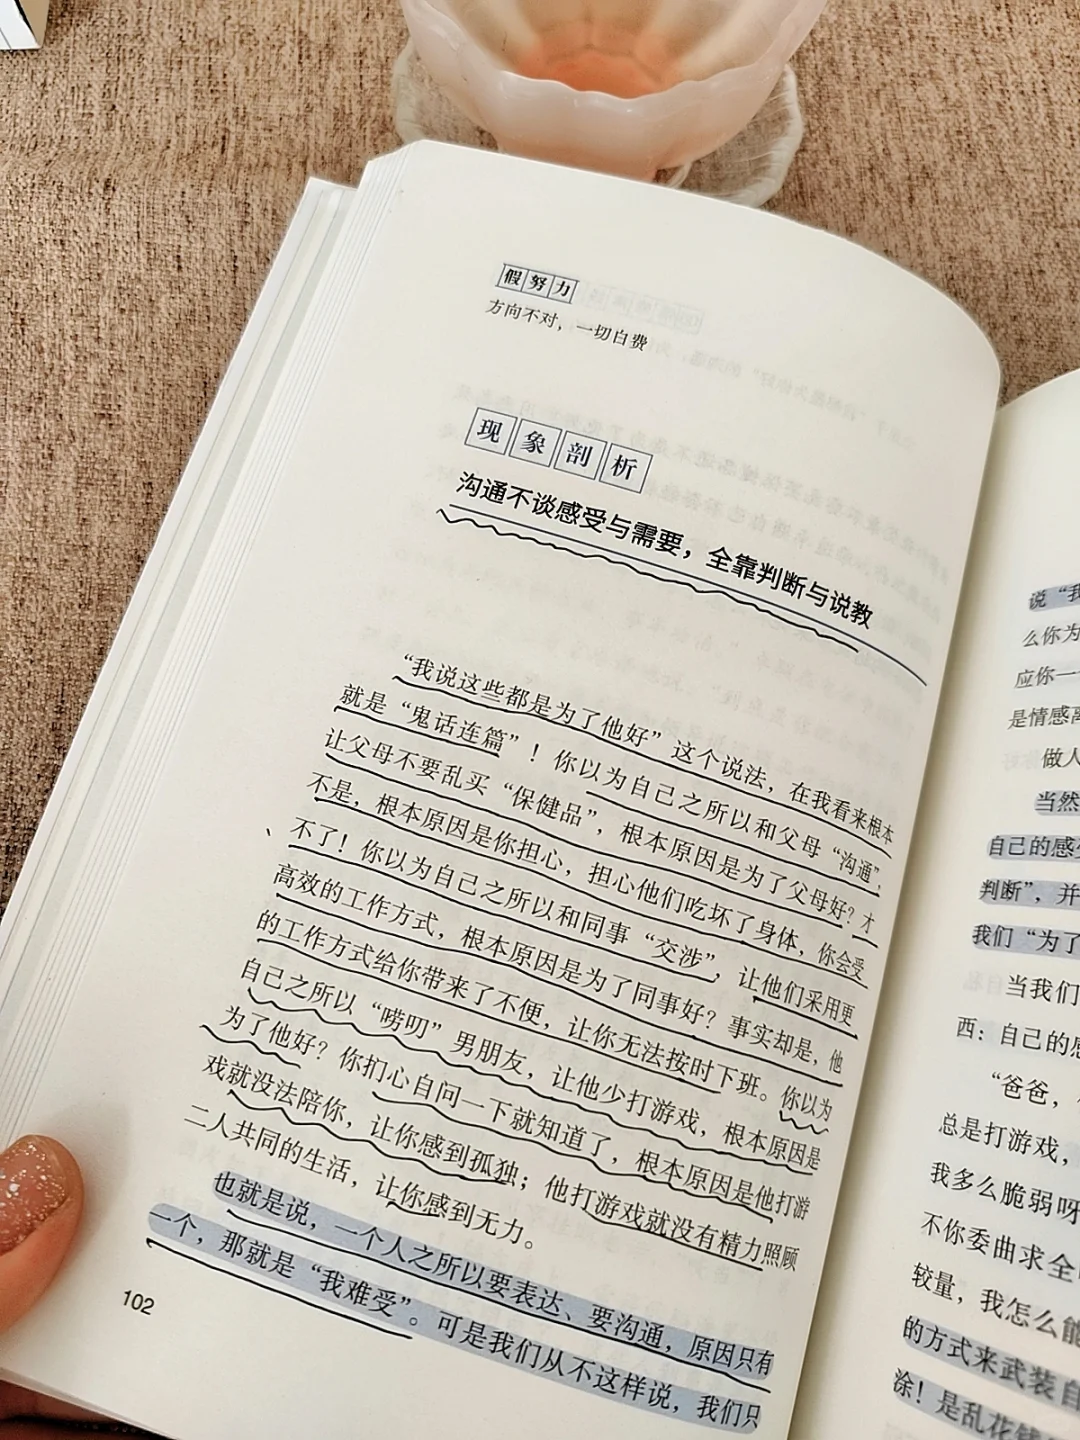 假努力
方向不对，一切白费
现象剖析
沟通不谈感受与需要，全靠判断与说教
“我说这些都是为了他好”这个说法，在我看来根本
就是“鬼话连篇”！你以为自己之所以和父母“沟通”，
让父母不要乱买“保健品”，根本原因是为了父母好？才
不是，根本原因是你担心，担心他们吃坏了身体，你会受
不了！你以为自己之所以和同事“交涉”，让他们采用更
高效的工作方式，根本原因是为了同事好？事实却是，他
的工作方式给你带来了不便，让你无法按时下班。你以为
自己之所以“唠叨”男朋友，让他少打游戏，根本原因是
为了他好？你扪心自问一下就知道了，根本原因是他打游
戏就没法陪你，让你感到孤独；他打游戏就没有精力照顾
二人共同的生活，让你感到无力。
也就是说，一个人之所以要表达、要沟通，原因只有
一个，那就是“我难受”。可是我们从不这样说，我们只
102
说“我
么你为
应你一
是情感
做人
当然
自己的感
判断”，并
我们“为了
当我们
西：自己的
“爸爸，
总是打游戏，
我多么脆弱呀
不你委曲求全
较量，我怎么能
的方式来武装自
涂！是乱花钱